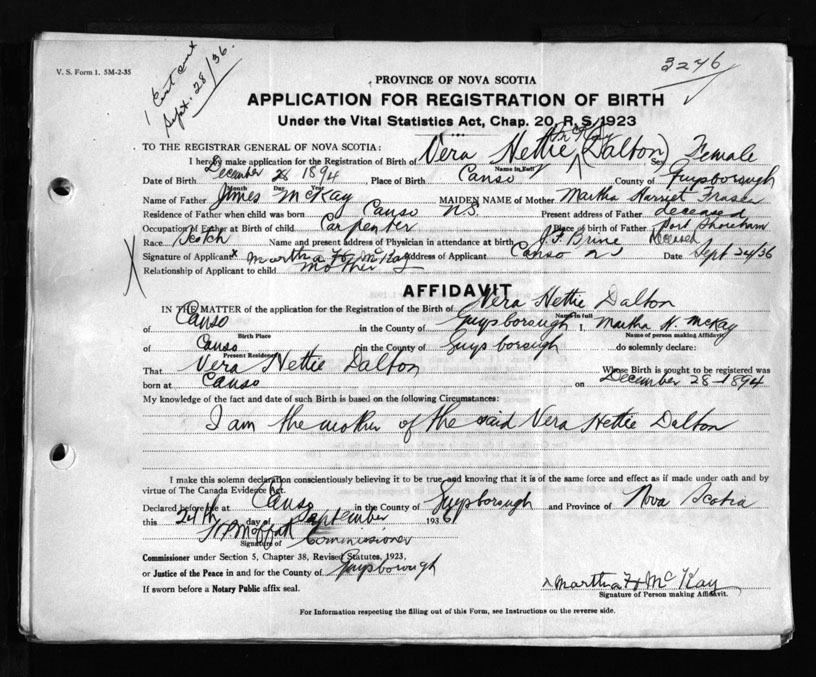 V. S. Form 1. 5M-2-35
1 Cert sent
Sept. 28/36.
3246
PROVINCE OF NOVA SCOTIA
APPLICATION FOR REGISTRATION OF BIRTH
Under the Vital Statistics Act, Chap. 20, R. S. 1923
TO THE REGISTRAR GENERAL OF NOVA SCOTIA:
McKay
I hereby make application for the Registration of Birth of Vera Hettie (Dalton) Sex Female
Name in Full
Date of Birth December 28 1894 Place of Birth Canso County of Guysborough
Month Day Year
Name of Father James McKay MAIDEN NAME of Mother Martha Harriet Fraser
Residence of Father when child was born Canso N.S. Present address of Father deceased
Occupation of Father at Birth of child Carpenter Place of birth of Father Port Shoreham
Race Scotch Name and present address of Physician in attendance at birth J. F. Brine Deceased
Signature of Applicant x Martha H McKay Address of Applicant Canso NS Date Sept 24/36
Relationship of Applicant to child mother
X
AFFIDAVIT
IN THE MATTER of the application for the Registration of Birth of Vera Hettie Dalton
Name in full
of Canso in the County of Guysborough I, Martha H. McKay
Birth Place Name of person making Affidavit
of Canso in the County of Guysborough do solemnly declare:
Present Residence
That Vera Hettie Dalton Whose Birth is sought to be registered was
born at Canso on December 28-1894
My knowledge of the fact and date of such Birth is based on the following Circumstances:
I am the mother of the said Vera Hettie Dalton
I make this solemn declaration conscientiously believing it to be true and knowing that it is of the same force and effect as if made under oath and by
virtue of The Canada Evidence Act.
Declared before me at Canso in the County of Guysborough and Province of Nova Scotia
this 24th day of September 1936
Moffatt
Signature of Commissioner
Commissioner under Section 5, Chapter 38, Revised Statutes, 1923,
or Justice of the Peace in and for the County of Guysborough
If sworn before a Notary Public affix seal.
x Martha H McKay
Signature of Person making Affidavit.
For Information respecting the filling out of this Form, see Instructions on the reverse side.